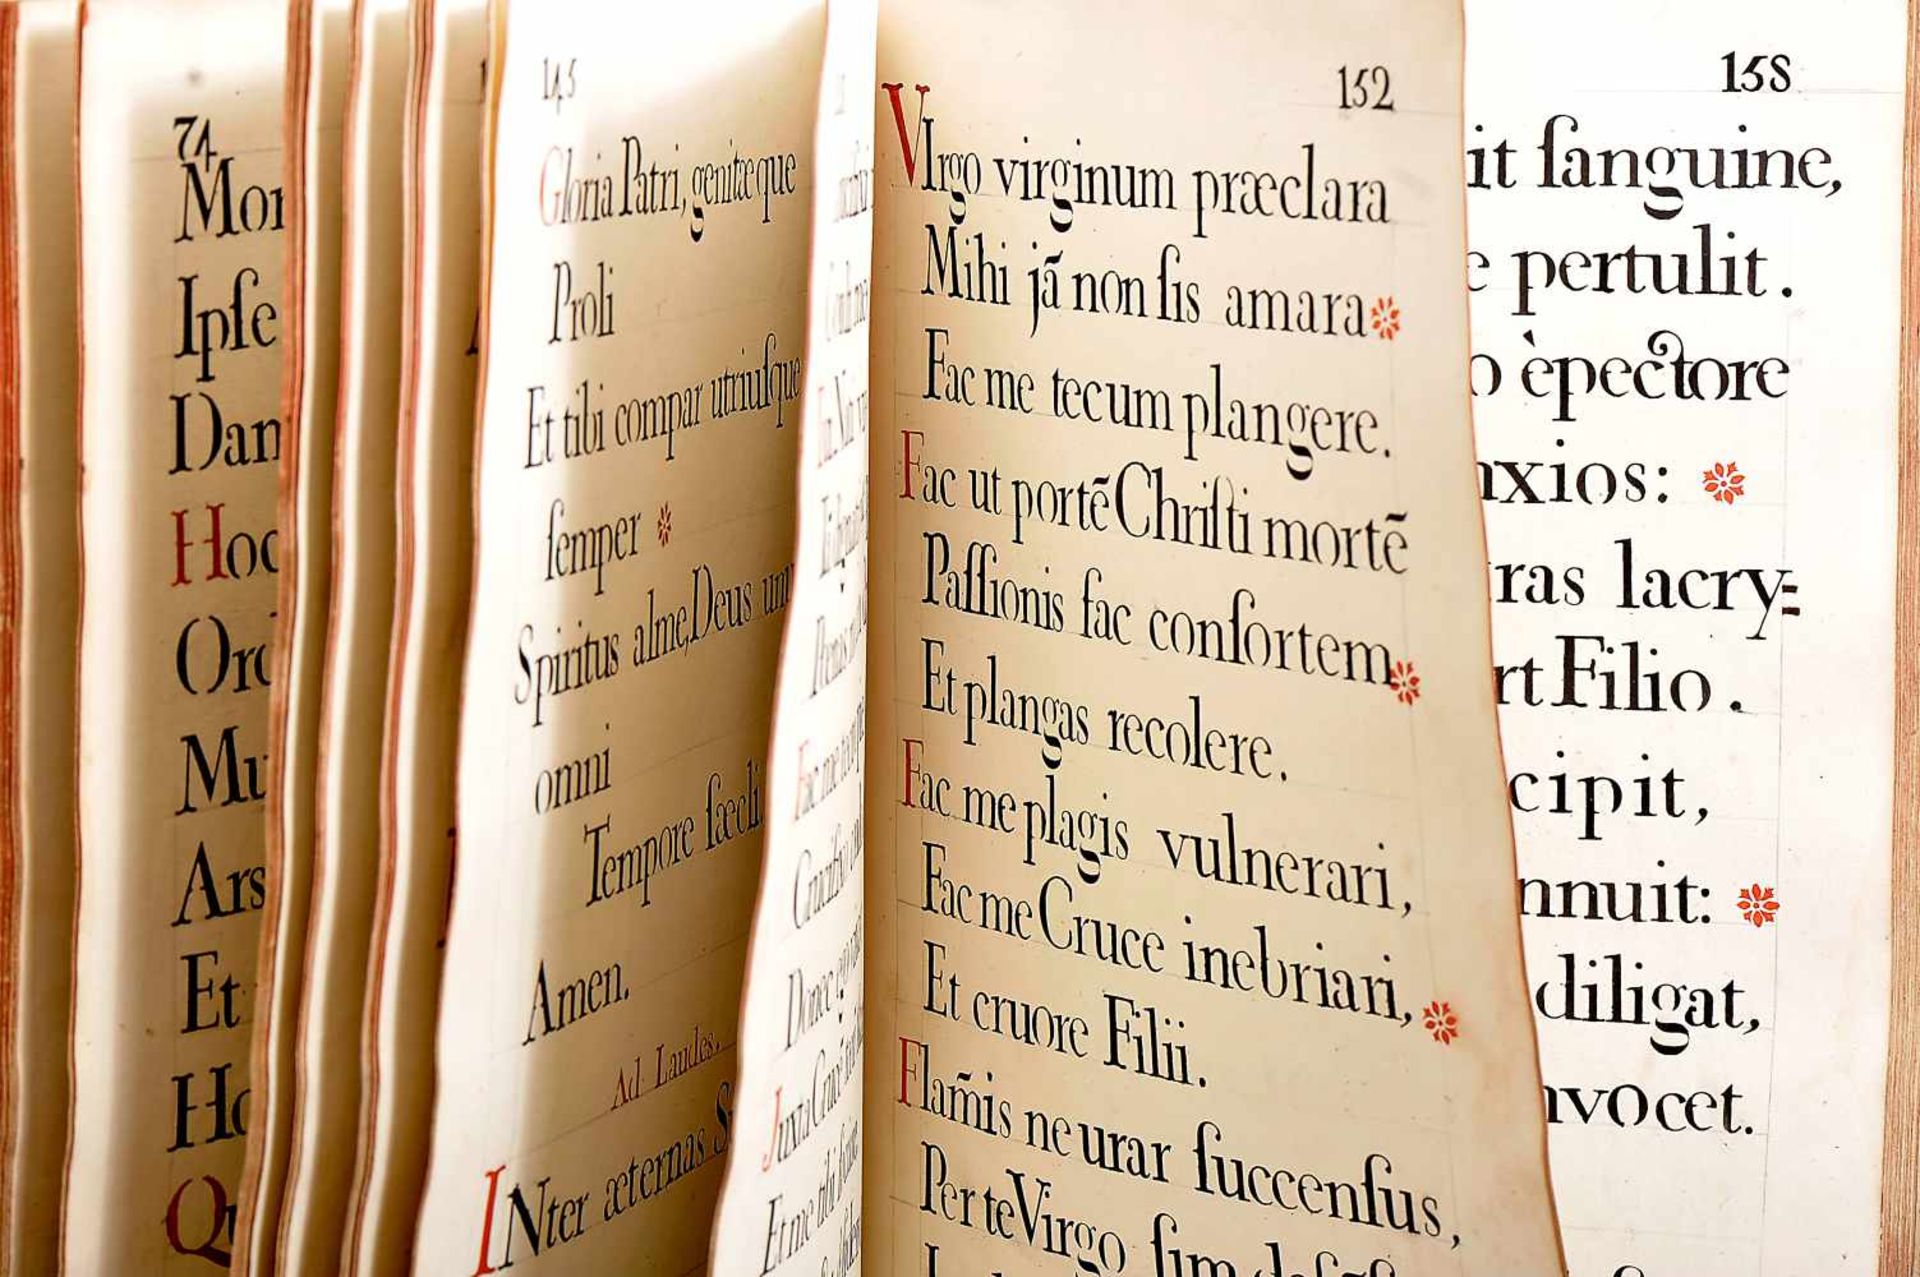 74
Mor
Ipſe
Dan
Hoc
Ord
Mu
Ars
Et
Ho
Qu
145
Gloria Patri, genitæque
Proli
Et tibi compar utriuſque
ſemper
Spiritus alme, Deus unu
omni
Tempore ſæcli.
Amen.
Ad Laudes.
INter æternas S
Fac me
Crucifixo
Donec ego
Juxta Crucē
Et me tibi
152
VIrgo virginum præclara
Mihi jā non ſis amara
Fac me tecum plangere.
Fac ut portē Chriſti mortē
Paſſionis fac conſortem
Et plangas recolere.
Fac me plagis vulnerari,
Fac me Cruce inebriari,
Et cruore Filii.
Flam̄is ne urar ſuccenſus,
Per te Virgo ſim
158
it ſanguine,
e pertulit.
o èpectore
nxios:
ras lacry=
rt Filio.
cipit,
nnuit:
diligat,
nvocet.